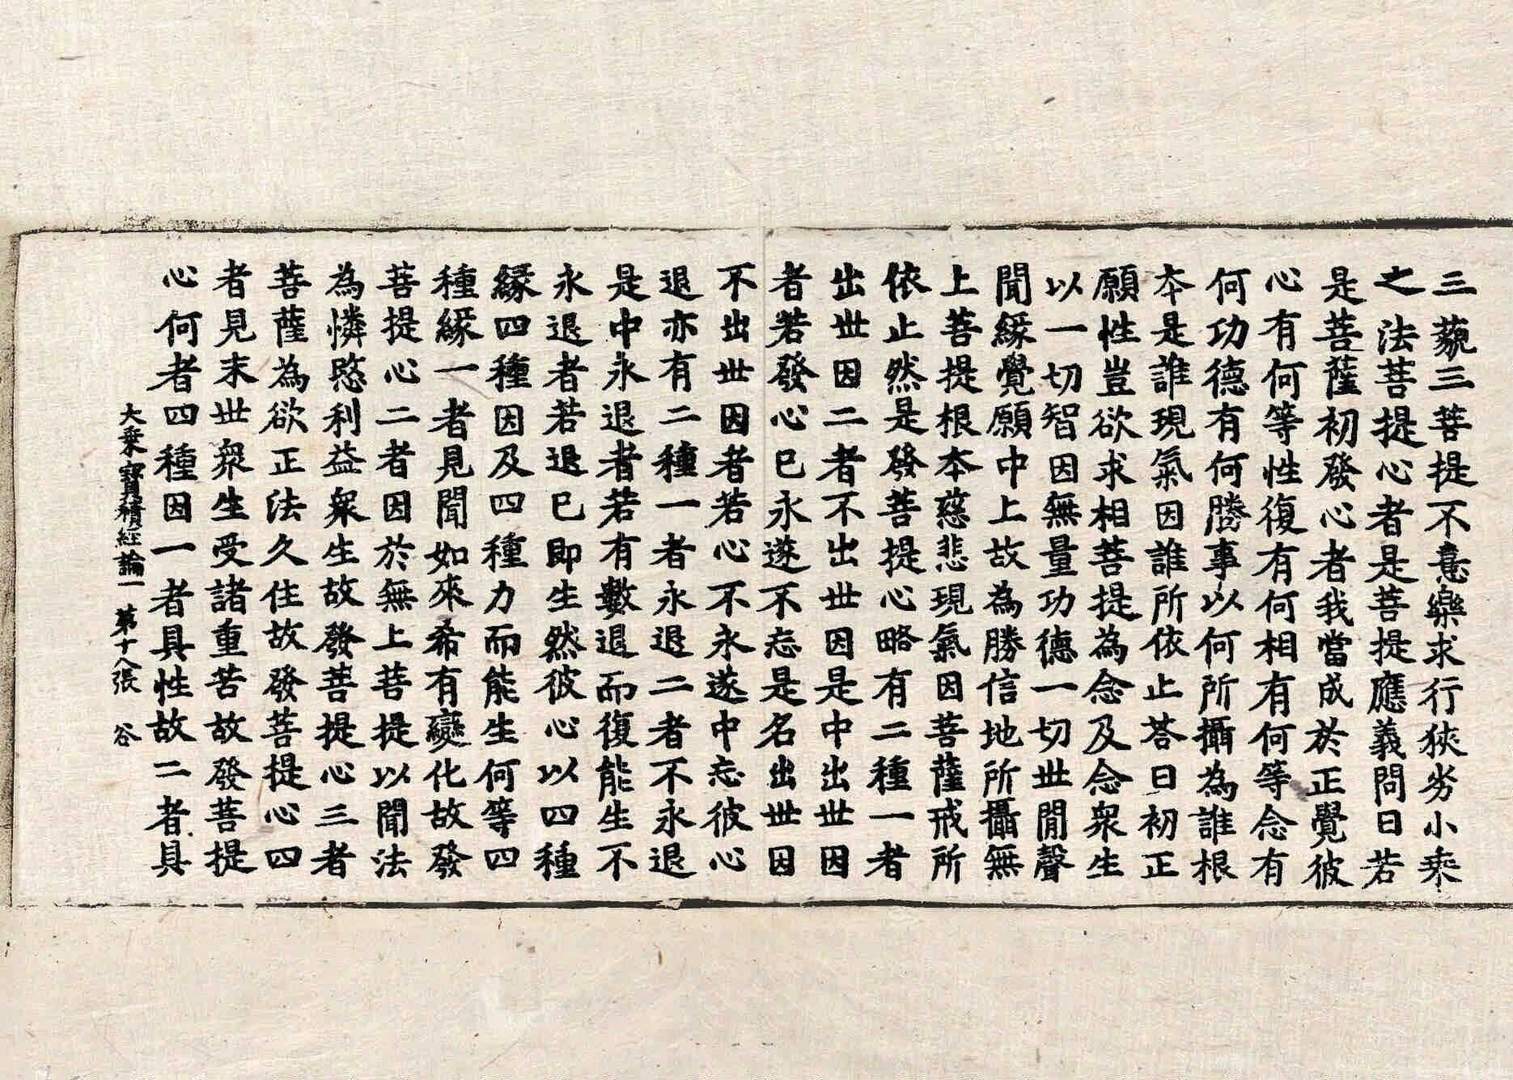 三藐三菩提不意樂求行狹劣小乘
之法菩提心者是菩提應義問曰若
是菩薩初發心者我當成於正覺彼
心有何等性復有何相有何等念有
何功德有何勝事以何所攝為誰根
本是誰現氣因誰所依止荅曰初正
願性豈欲求相菩提為念及念衆生
以一切智因無量功德一切世閒聲
聞緣覺願中上故為勝信地所攝無
上菩提根本慈悲現氣因菩薩戒所
依止然是發菩提心略有二種一者
出世因二者不出世因是中出世因
者若發心已永遂不忘是名出世因
不出世因者若心不永遂中忘彼心
退亦有二種一者永退二者不永退
是中永退者若有數退而復能生不
永退者若退已即生然彼心以四種
緣四種因及四種力而能生何等四
種緣一者見聞如來希有變化故發
菩提心二者因於無上菩提以聞法
為憐愍利益衆生故發菩提心三者
菩薩為欲正法久住故發菩提心四
者見末世衆生受諸重苦故發菩提
心何者四種因一者具性故二者具
大乘寶積經論一 第十八張 谷